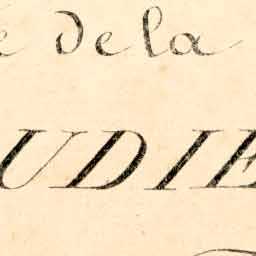 é de la
UDIE